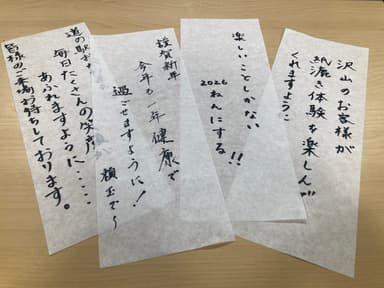 沢山のお客様が
紙漉き体験を楽しんで
くれますように
楽しいことしかない
2026
ねんにする!!
謹賀新年
今年も一年健康で
過ごせますように!
道の駅
毎日たくさんの笑顔
あふれますように・・・・
皆様のご来場お待ちしております。